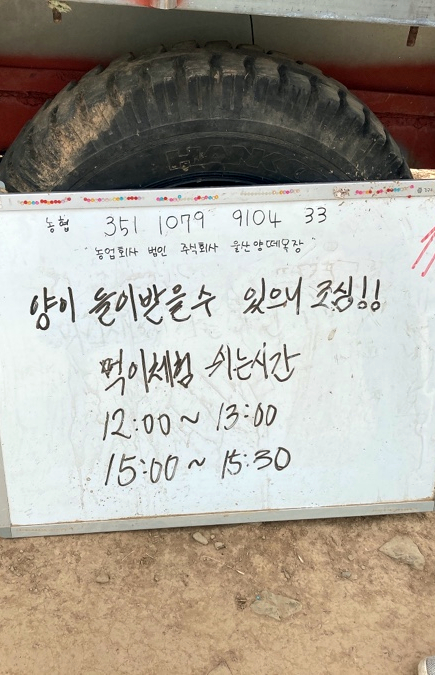 농협 351 1079 9104 33
"농업회사 법인 주식회사 울산양떼목장"
양이 들이받을수 있으니 조심!!
먹이체험 쉬는시간
12:00~ 13:00
15:00~ 15:30